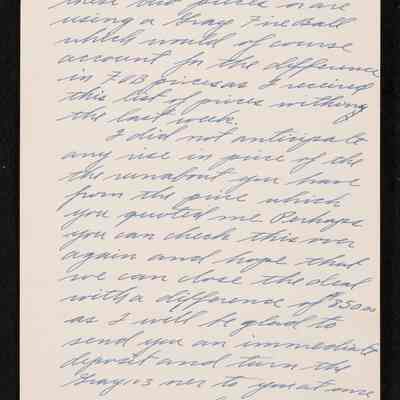 these two prices or are
using a Gray Fireball
which would of course
account for the difference
in FOB prices as I received
this list of prices within
the last week.
I did not anticipate
any rise in price of the
the runabout you have
from the price which
you quoted me Perhaps
you can check this over
again and hope that
we can close the deal
with a difference of $850.00
as I will be glad to
send you an immediate
deposit and turn the
Gray 13 over to you at once